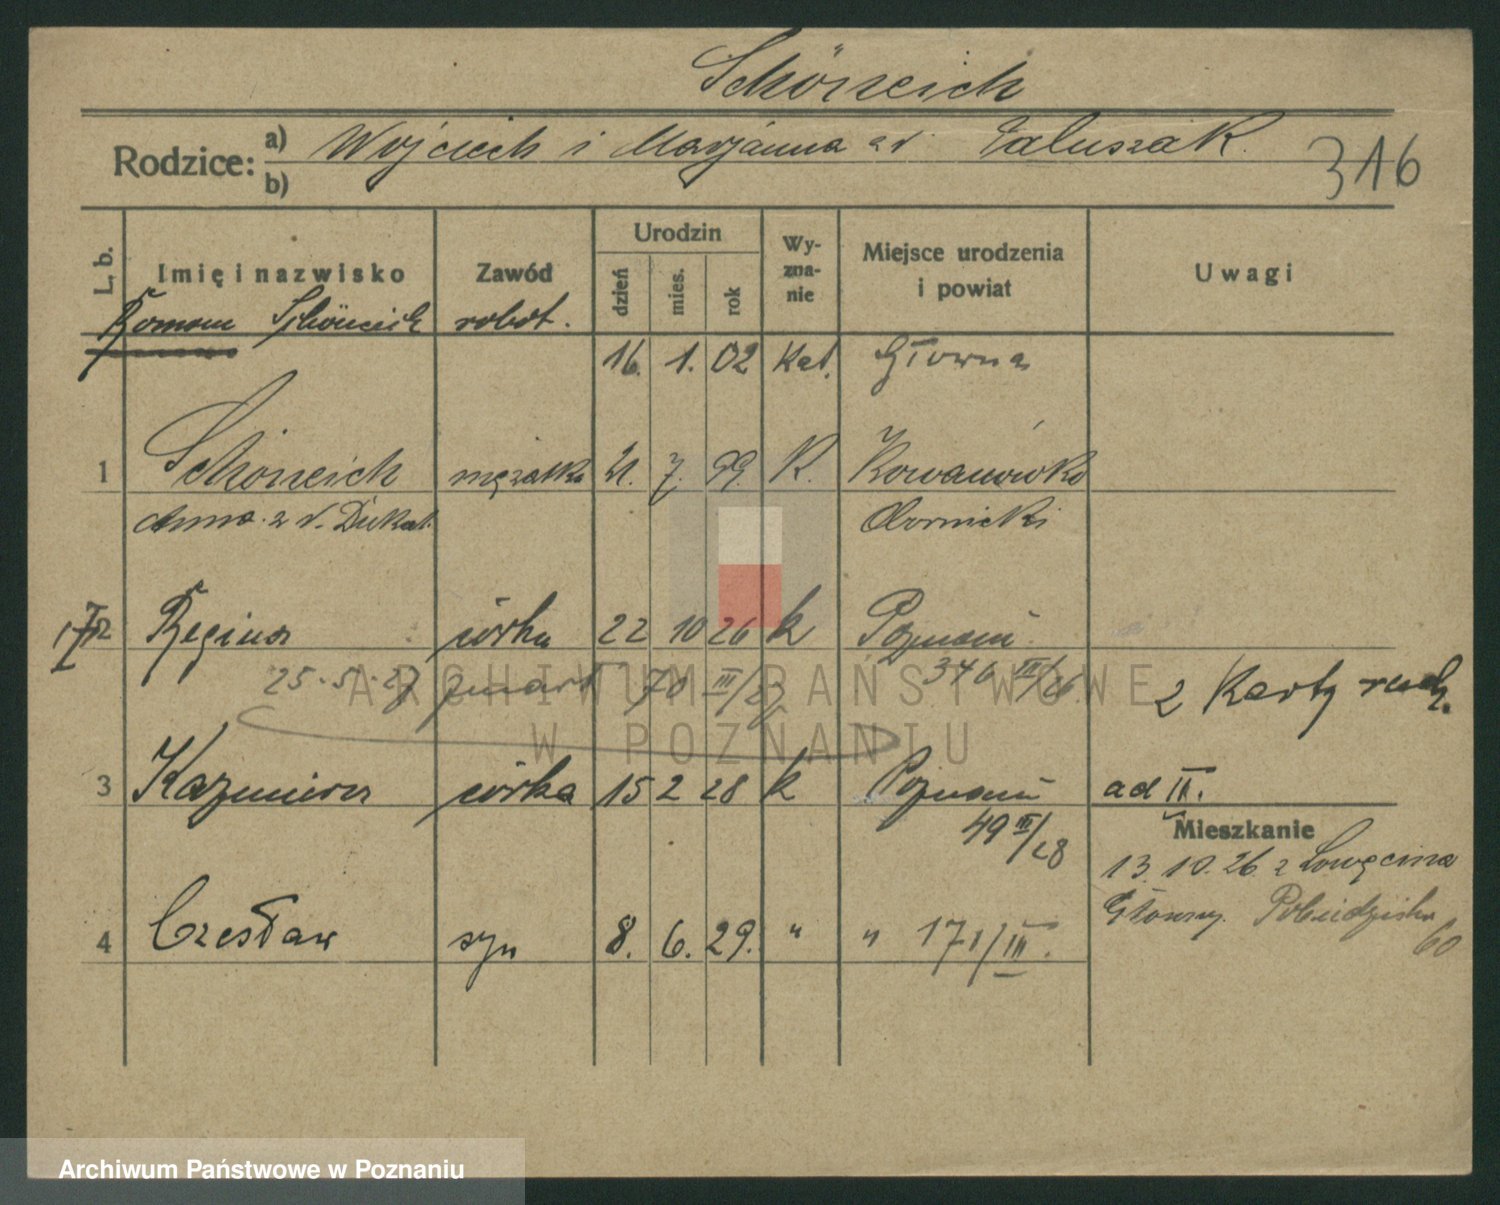 Schöneich
Rodzice: a) Wojciech i Marjanna zd Galuszak.
b)
316
L. b. Imię i nazwisko Zawód Urodzin dzień mies. rok Wyznanie Miejsce urodzenia i powiat Uwagi
Roman Schöneich robot.
16. 1. 02 Kat. Główna
1 Schöneich mężatka 21. 7. 99. K. Kowanówko
Anna z d. Dukat. Obornicki
2 Regina córka 22 10 26 k Poznań
346 III/26
25.5.27 zmarł 70 III/27
2 Karty
3 Kazimiera córka 15 2 28 k Poznań ad II.
49 III/28
Mieszkanie
13.10.26 z Łowęcina
Główny. Pobiedziska
60
4 Czesław syn 8. 6. 29. " " 171/III.
ARCHIWUM PAŃSTWOWE
W POZNANIU
Archiwum Państwowe w Poznaniu